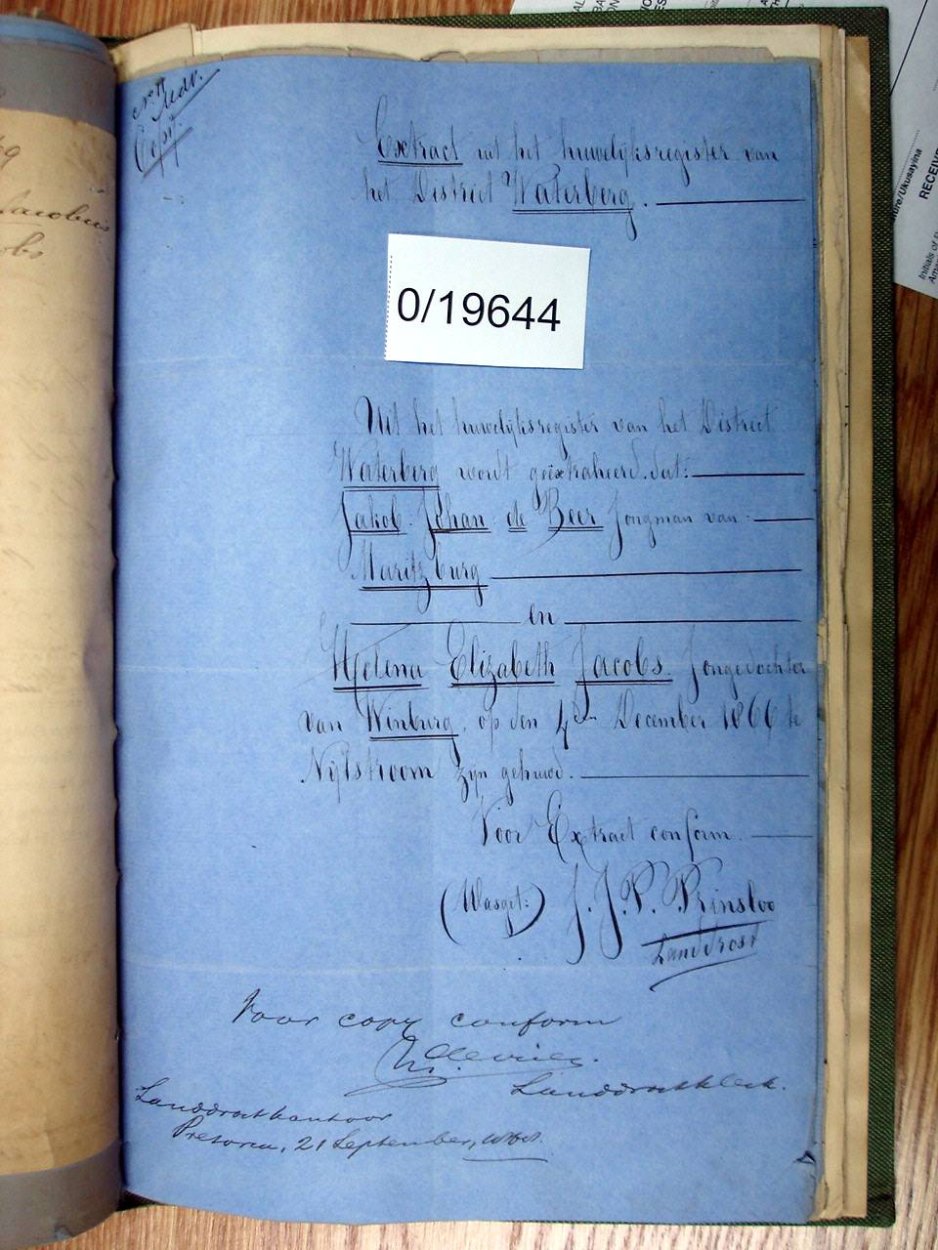 Copij.
Extract uit het huwelijksregister van
het District Waterberg.
0/19644
Uit het huwelijksregister van het District
Waterberg wordt geëxtraheerd dat:
Jakob Johan de Beer Jongman van
Maritzburg
en
Helena Elizabeth Jacobs Jongedochter
van Winburg, op den 4den December 1866 te
Nijlstroom zijn gehuwd.
Voor Extract conform.
(Wasget:) J. J. P. Prinsloo
Landdrost
Voor copy conform
Landdrostklerk.
Landdrostkantoor
Pretoria, 21 September,
RECEIVE
ure/Ukusayina
Initials of